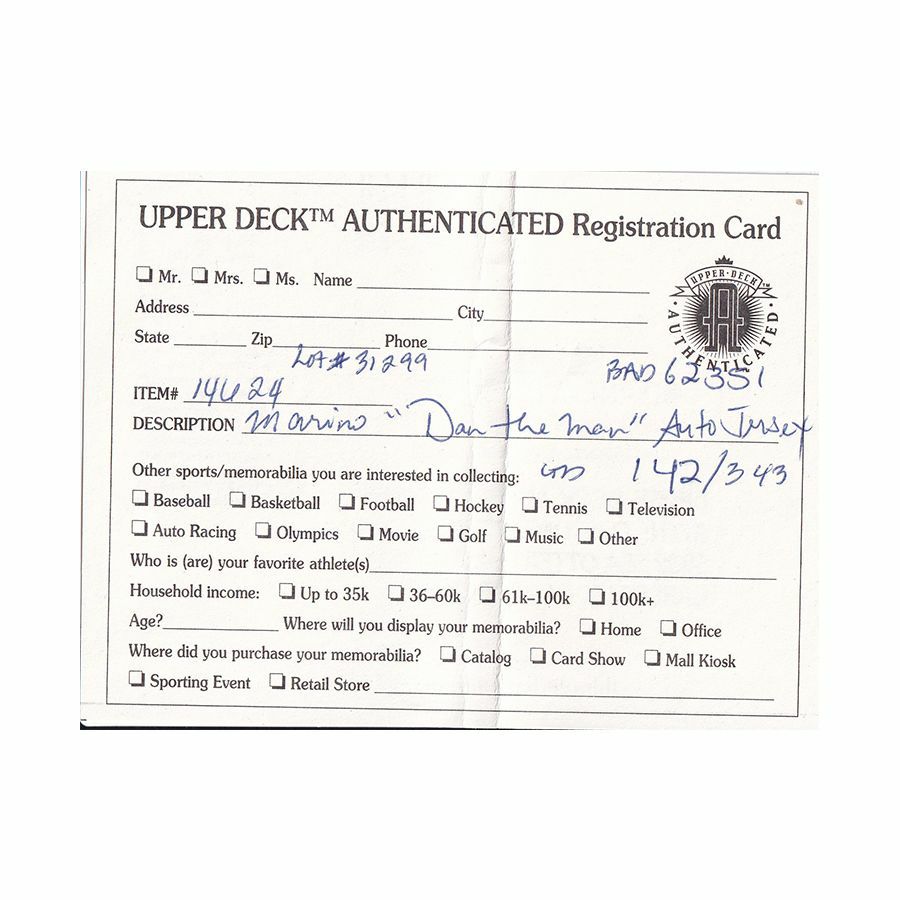 UPPER DECK™ AUTHENTICATED Registration Card
❏ Mr. ❏ Mrs. ❏ Ms. Name
UPPER DECK™
AUTHENTICATED
A
Address City
State Zip Phone
Lot # 31299
BAD 62351
ITEM# 14624
DESCRIPTION Marino "Dan the Man" Auto Jersey
Other sports/memorabilia you are interested in collecting: 142/343
❏ Baseball ❏ Basketball ❏ Football ❏ Hockey ❏ Tennis ❏ Television
❏ Auto Racing ❏ Olympics ❏ Movie ❏ Golf ❏ Music ❏ Other
Who is (are) your favorite athlete(s)
Household income: ❏ Up to 35k ❏ 36–60k ❏ 61k–100k ❏ 100k+
Age? Where will you display your memorabilia? ❏ Home ❏ Office
Where did you purchase your memorabilia? ❏ Catalog ❏ Card Show ❏ Mall Kiosk
❏ Sporting Event ❏ Retail Store